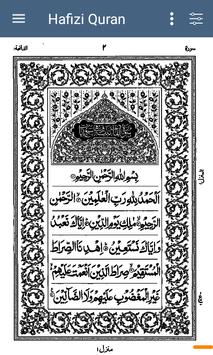 Hafizi Quran
الفاتحة ٢ سورة
بِسْمِ اللهِ الرَّحْمٰنِ الرَّحِيْمِ
اَلْحَمْدُ لِلّٰهِ رَبِّ الْعٰلَمِيْنَ الرَّحْمٰنِ
الرَّحِيْمِ مٰلِكِ يَوْمِ الدِّيْنِ اِيَّاكَ نَعْبُدُ
وَاِيَّاكَ نَسْتَعِيْنُ اِهْدِنَا الصِّرَاطَ
الْمُسْتَقِيْمَ صِرَاطَ الَّذِيْنَ اَنْعَمْتَ عَلَيْهِمْ
غَيْرِ الْمَغْضُوْبِ عَلَيْهِمْ وَلَا الضَّآلِّيْنَ
منزل ١